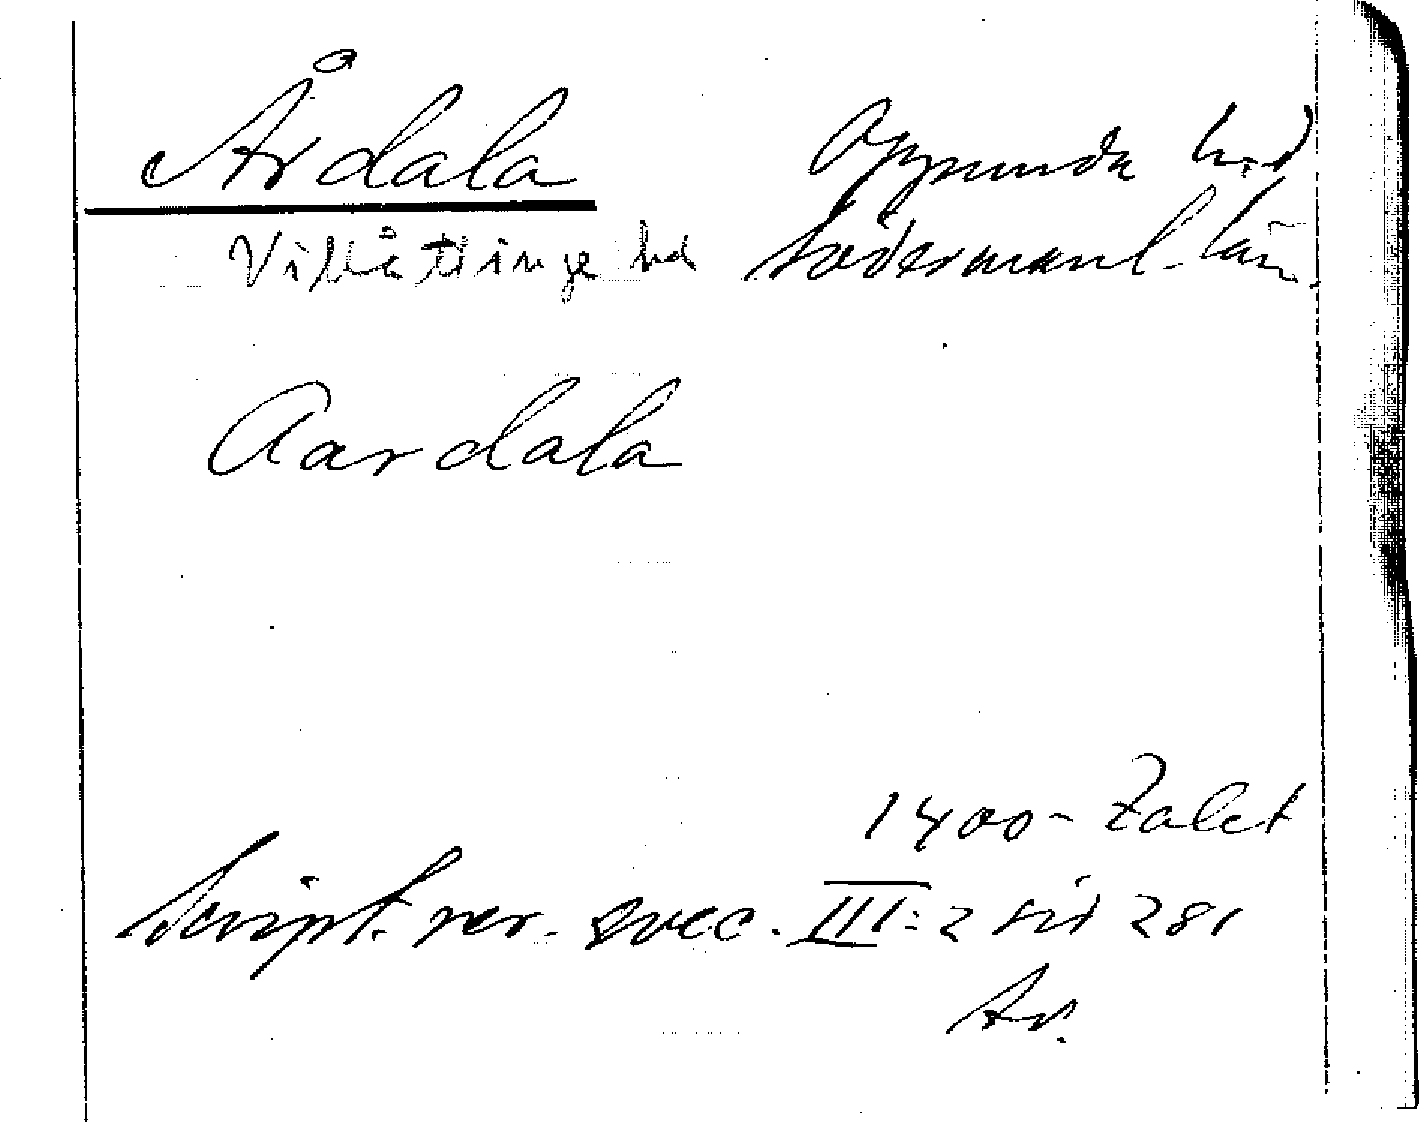 Årdala Oppunda h.d
Villåttinge hd Södermanl. län.
Aardala
1400-talet
Script. rer. svec. III:2 sid 281
Av.